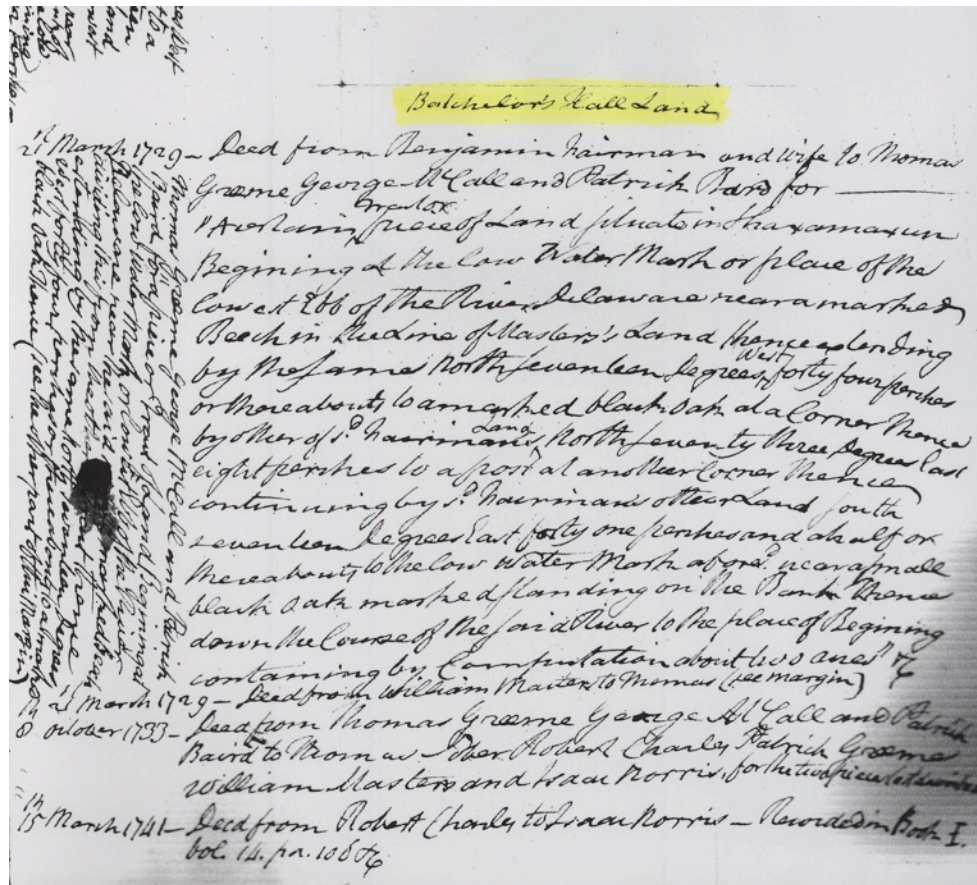 Batchelor's Hall Land
21st March 1729 – Deed from Benjamin Fairman and Wife to Thomas
Graeme George McCall and Patrick Bard for
"A certain piece or lot of Land situate in Shaxamaxun
Begining at the Low Water Mark or place of the
lowest Ebb of the River Delaware near a marked
Beech in the Line of Masters's Land thence extending
by the same North seventeen Degrees West, forty four perches
or thereabouts to a marked black Oak at a Corner thence
by other of sd. Fairman's Land, North seventy three Degrees East
eight perches to a post at another Corner thence
continuing by sd. Fairman's other Land South
seventeen Degrees East forty one perches and a half or
thereabouts to the low Water Mark afores.d near a small
black Oak marked standing on the Bank thence
down the Course of the said River to the place of Begining
containing by Computation about two acres" &c
21st March 1729 – Deed from William Masters to Thomas (see margin)
8th October 1733 – Deed from Thomas Graeme George McCall and Patrick
Baird to Thomas Robert Charles Patrick Graeme
William Masters and Isaac Norris, for the two pieces
15th March 1741 – Deed from Robert Charles to Isaac Norris – Recorded in Book I.
vol. 14. pa. 108 &c
Thomas Graeme George McCall and Patrick
Baird for a piece or Land Begining at
Low Water Mark or lowest Ebb of the River
Delaware near the said
extending by the same North seventeen Degrees
West forty four perches to a marked
black Oak thence (see the other part of this Margin)